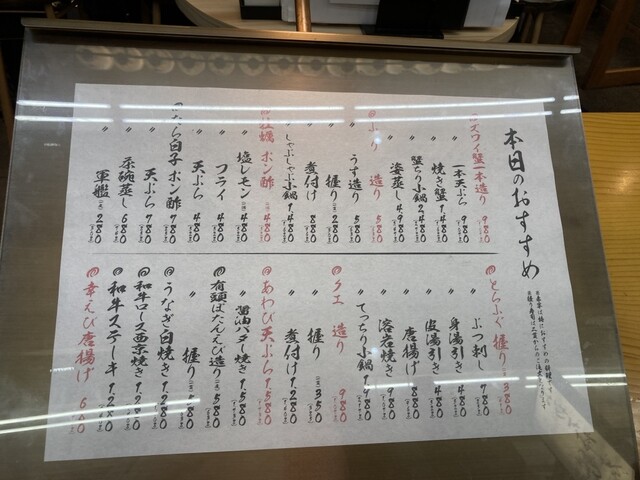 本日のおすすめ
ズワイ蟹一本造り 980
〃 一本天ぷら 980
〃 焼き蟹 1,480
〃 蟹ちり小鍋 2,480
〃 姿蒸し 4,980
ぶり 造り 580
〃 うす造り 580
〃 握り 280
〃 煮付け 880
〃 しゃぶしゃぶ小鍋 1,180
牡蠣 ポン酢 480
〃 塩レモン 480
〃 フライ 480
〃 天ぷら 480
たら白子 ポン酢 780
〃 天ぷら 780
〃 茶碗蒸し 680
〃 軍艦 280
とらふぐ 握り 380
〃 ぶつ刺し 780
〃 身湯引き 480
〃 皮湯引き 480
〃 唐揚げ 880
〃 溶岩焼き 980
〃 てっちり小鍋 1,480
クエ 造り 980
〃 握り 350
〃 煮付け 1,280
あわび 天ぷら 1,580
〃 醤油バター焼き 1,580
有頭ぼたんえび造り 580
〃 握り 580
うなぎ白焼き 1,280
和牛ロース西京焼き 1,280
和牛ステーキ 1,280
幸えび唐揚げ 600